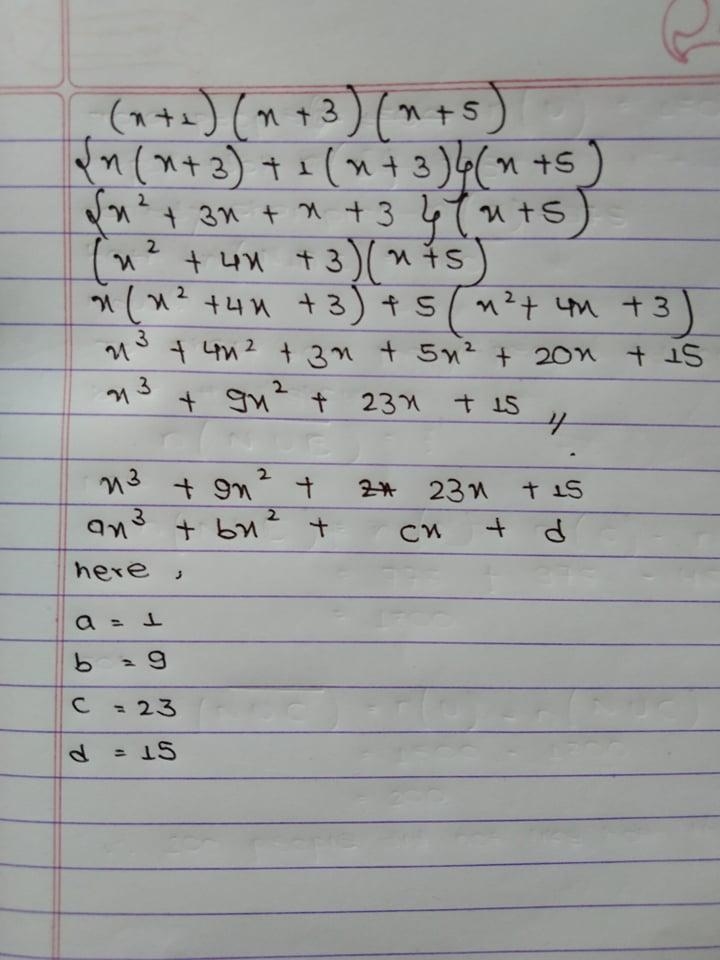 (x+1)(x+3)(x+5)
{x(x+3)+1(x+3)}(x+5)
{x²+3x+x+3}(x+5)
(x²+4x+3)(x+5)
x(x²+4x+3)+5(x²+4x+3)
x³+4x²+3x+5x²+20x+15
x³+9x²+23x+15 //
x³+9x²+ 23x+15
ax³+bx²+cx+d
here,
a=1
b=9
c=23
d=15